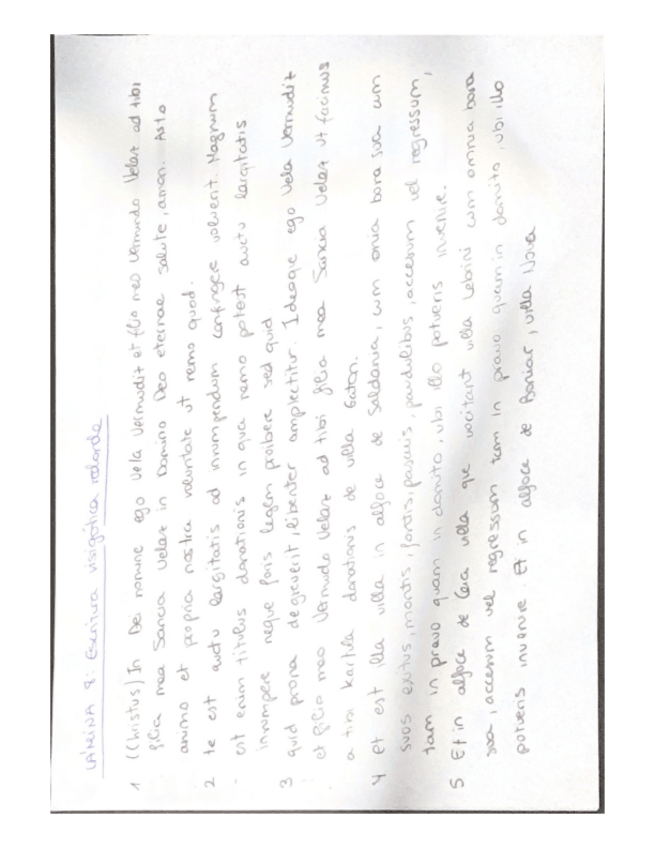 LÁMINA 8: Escritura visigótica redonda
1 ((Christus) In Dei nomine ego Vela Vermudit et filio meo Vermundo Velaz ad tibi
filia mea Sancia Velaz in Domino Deo eternae salute, amen. Asto
animo et propria nostra voluntate ut nemo quod.
2 te est auctu largitatis ad inrumpendum confringere volverit. Magnum
est enim titulus donationis in qua nemo potest auctu largitatis
inrumpere neque foris legem proibere sed quid
3 quid prona degreverit, libenter amplectitur. Ideoque ego Vela Vermudit
et filio meo Vermudo Velaz ad tibi filia mea Sancia Velaz ut facimus
a tibi donationis de villa Gaton.
4 et est illa villa in alfoce de Saldania, cum omnia bona sua cum
suos exitus, montis, fontis, pascuis, paludibus, accesum vel regressum,
tam in pravo quam in domito, ubi illo potueris invenire.
5 Et in alfoce de Ceia villa que vocitant villa Lebini cum omnia bona
sua, accesum vel regressum tam in pravo quam in domito, ubi illo
potueris invenire. Et in alfoce de Boniar, villa Nova